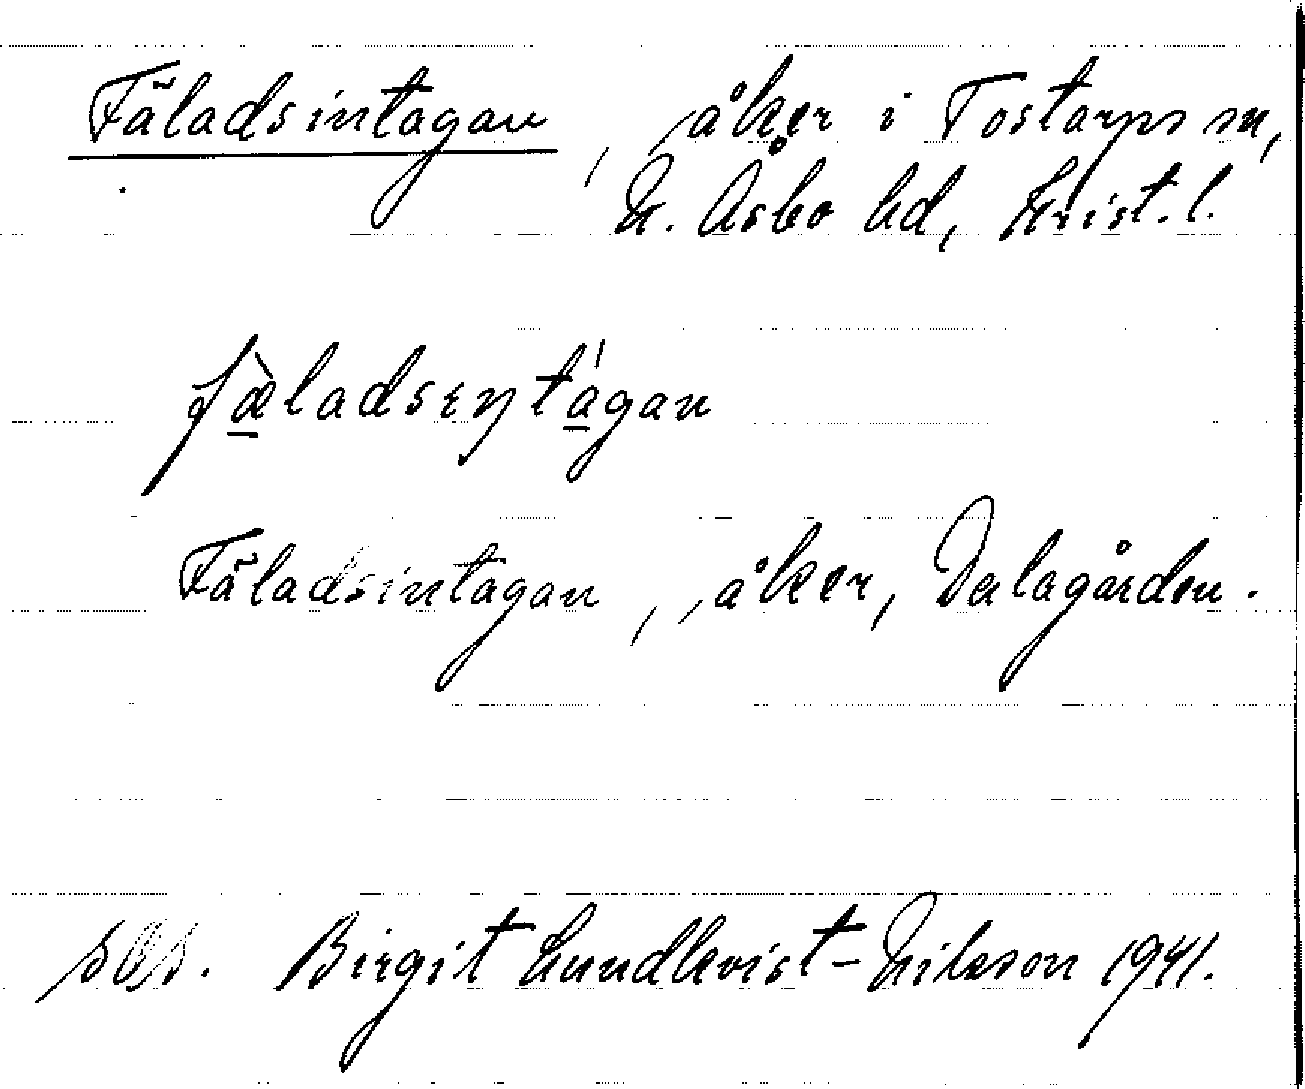 Fäladsintagan, åker i Tostarps sn,
N. Åsbo hd, Krist. l.
fæ̀ladsıŋtágan
Fäladsintagan, åker, Dalagården.
Birgit Lundkvist-Nilsson 1941.